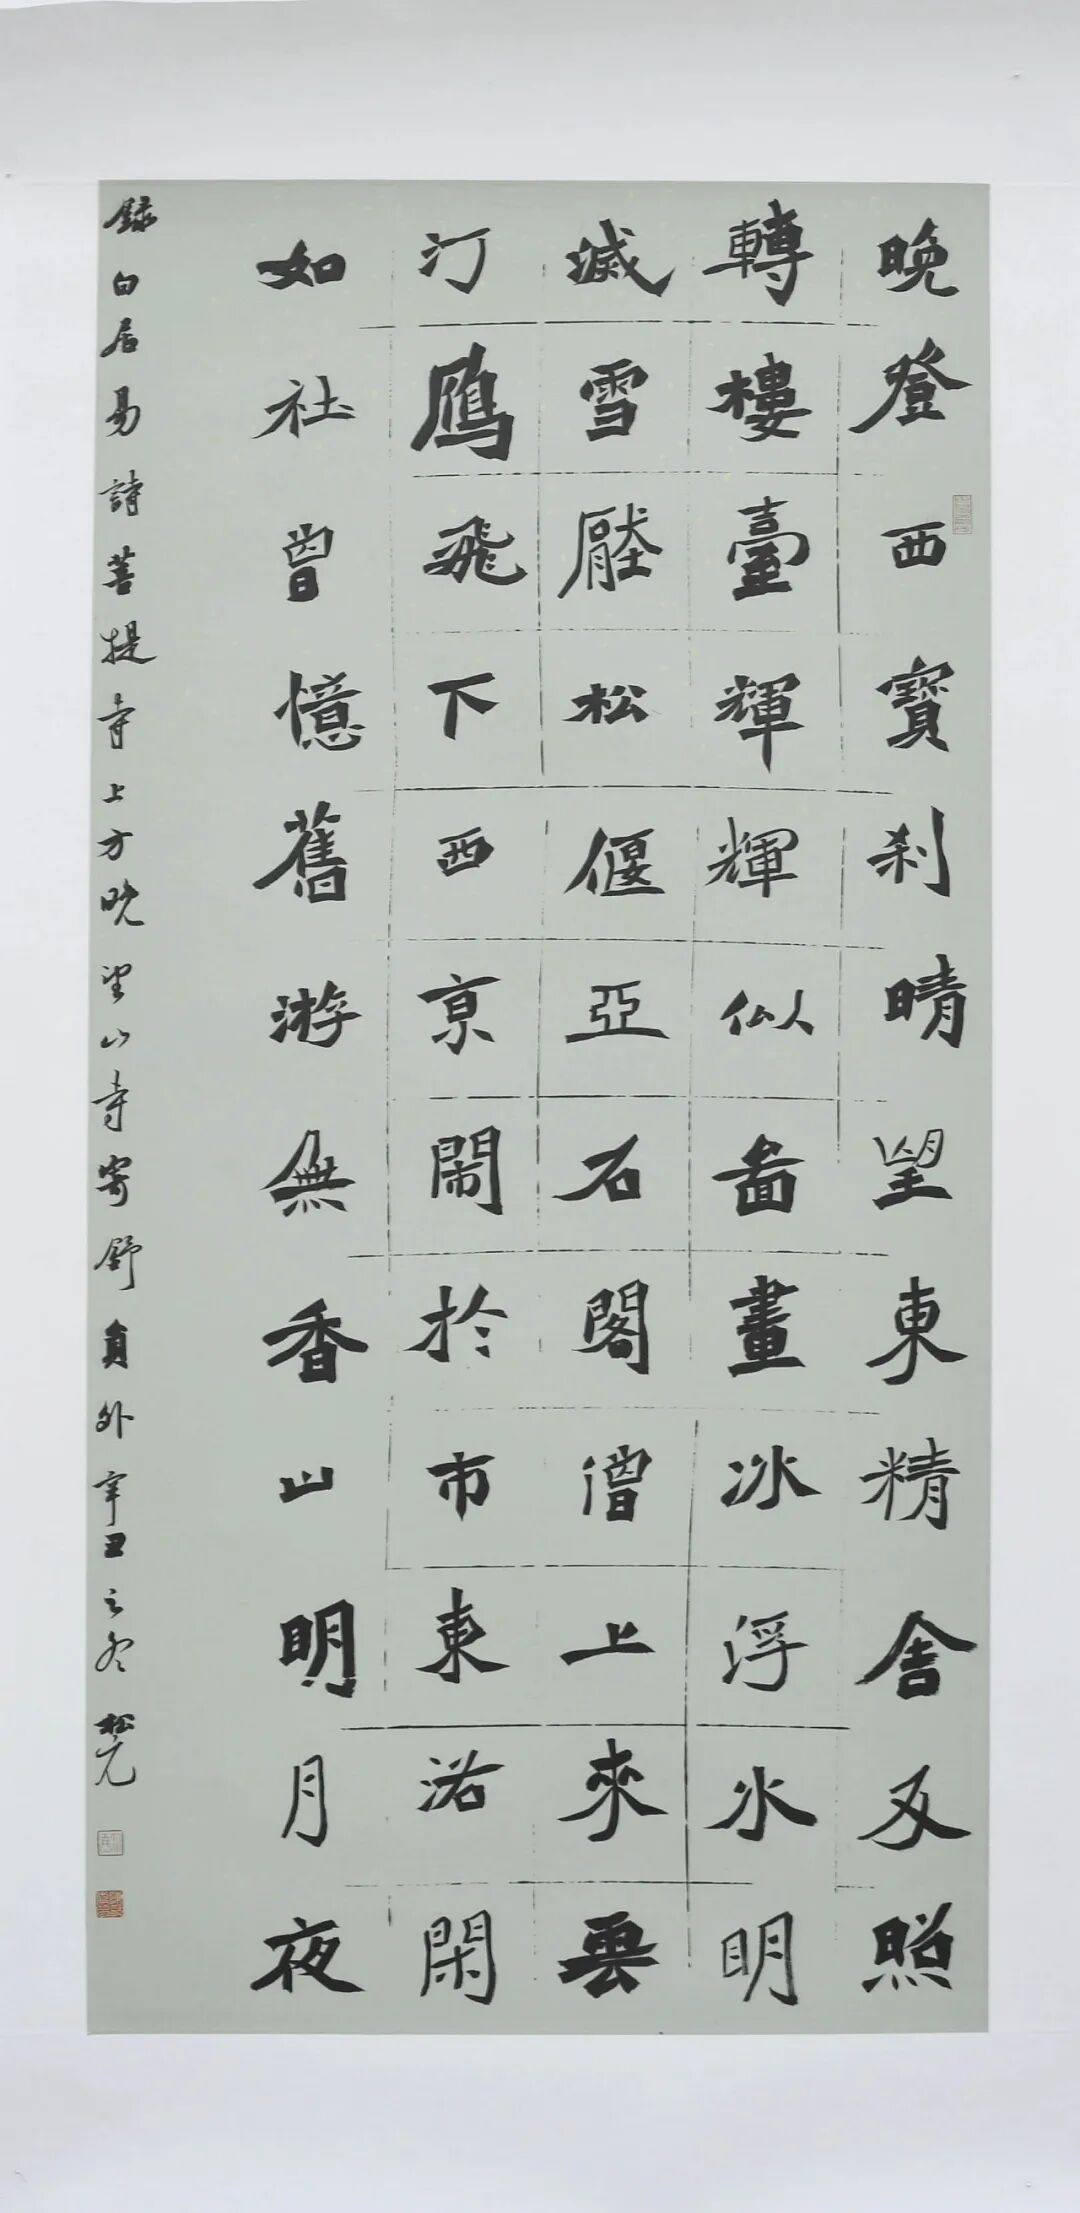 晚登西寶刹晴望東精舍反照
轉樓臺輝輝似畵畫冰浮水明
滅雪壓松偃亞石閣僧上來雲
汀鴈飛下西京鬧於市東洛閑
如社曾憶舊游無香山明月夜
錄白居易詩菩提寺上方晚望山寺寄舒員外辛丑之冬松元